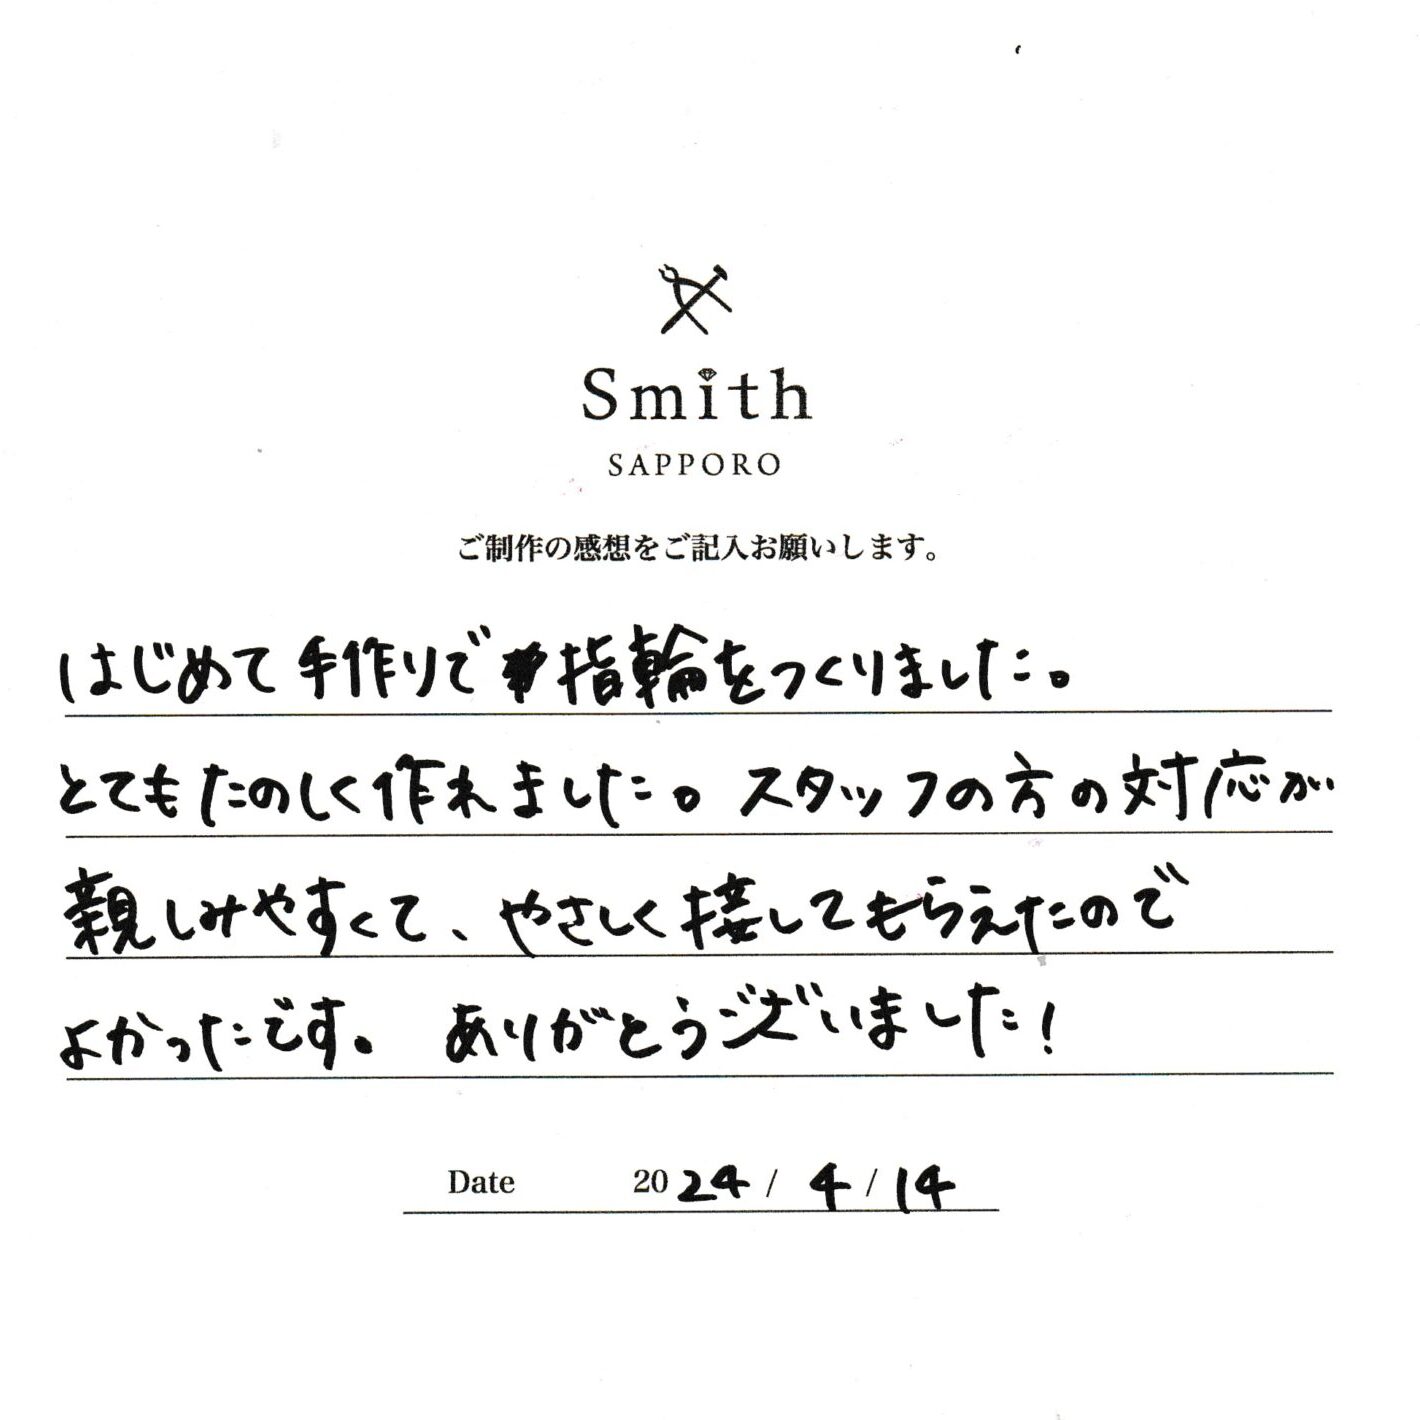 Smith
SAPPORO
ご制作の感想をご記入お願いします。
はじめて手作りで指輪をつくりました。
とてもたのしく作れました。スタッフの方の対応が
親しみやすくて、やさしく接してもらえたので
よかったです。ありがとうございました!
Date 2024 / 4 / 14